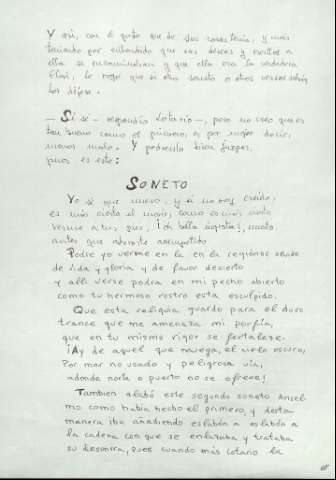 Y así, con el gusto que de sus cosas tenía, y más
teniendo por entendido que sus deseos y escritos a
ella se encaminaban y que ella era la verdadera
Clori, le rogó que si otro soneto o otros versos sabía
los dijese.
— Sí sé — respondió Lotario —, pero no creo que es
tan bueno como el primero, o, por mejor decir,
menos malo. Y podréislo bien juzgar,
pues es este:
SONETO
Yo sé que muero, y si no soy creído,
es más cierto el morir, como es más cierto
verme a tus pies, ¡oh bella ingrata!, muerto,
antes que adorarte arrepentido
Podré yo verme en la en la region de olvido
de vida y gloria y de favor desierto
y allí verse podrá en mi pecho abierto
como tu hermoso rostro está esculpido.
Que esta reliquia guardo para el duro
trance que me amenaza mi porfía,
que en tu mismo rigor se fortaleze.
¡Ay de aquel que navega, el cielo oscuro,
Por mar no usado y peligrosa vía,
adonde norte o puerto no se ofrece!
Tambien alabó este segundo soneto Ansel
mo como había hecho el primero, y desta
manera iba añadiendo eslabón a eslabón a
la cadena con que se enlazaba y trataba
su deshonra, pues cuando más Lotario la